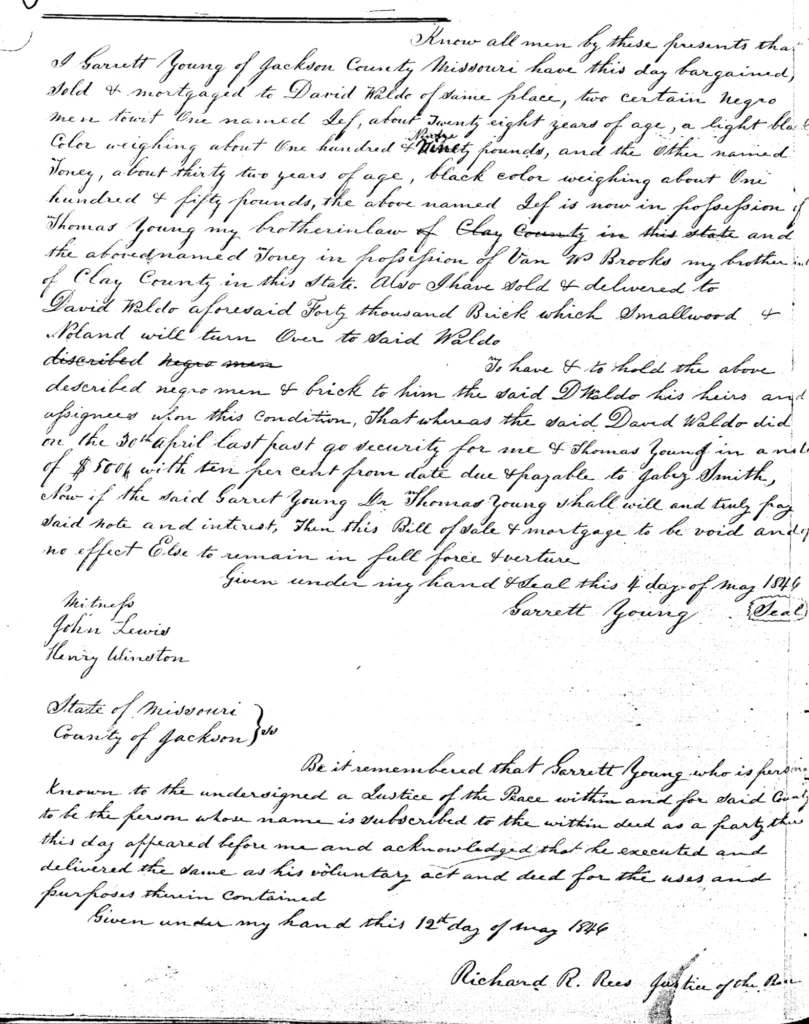 Know all men by these presents tha
I Garrett Young of Jackson County Missouri have this day bargained,
sold & mortgaged to David Waldo of same place, two certain negro
men towit One named Jef, about Twenty eight years of age, a light blac
Color weighing about One hundred & Ninety pounds, and the Other named
Toney, about thirty two years of age, black color weighing about One
hundred & fifty pounds, the above named Jef is now in possession of
Thomas Young my brotherinlaw of Clay County in this state and
the abovenamed Toney in possession of Van Wk Brooks my brother
of Clay County in this State. Also I have sold & delivered to
David Waldo aforesaid Forty thousand Brick which Smallwood &
Noland will turn Over to said Waldo
discribed negro men To have & to hold the above
described negro men & brick to him the said D Waldo his heirs and
assignees upon this condition, That whereas the said David Waldo did
on the 30th April last past go security for me & Thomas Young in a note
of $ with ten per cent from date due & payable to Jabez Smith,
Now if the said Garret Young Or Thomas Young shall will and truly pay
said note and interest, Then this Bill of Sale & mortgage to be void and of
no effect Else to remain in full force & verture
Given under my hand & Seal this 4 day of May 1846
Garrett Young (Seal)
Witness
John Lewis
Henry Winston
State of Missouri
County of Jackson } ss
Be it remembered that Garrett Young who is person
Known to the undersigned a Justice of the Peace within and for said County
to be the person whose name is subscribed to the within deed as a party the
this day appeared before me and acknowledged that he executed and
delivered the same as his voluntary act and deed for the uses and
purposes therein contained
Given under my hand this 12th day of May 1846
Richard R. Rees Justice of the Peace